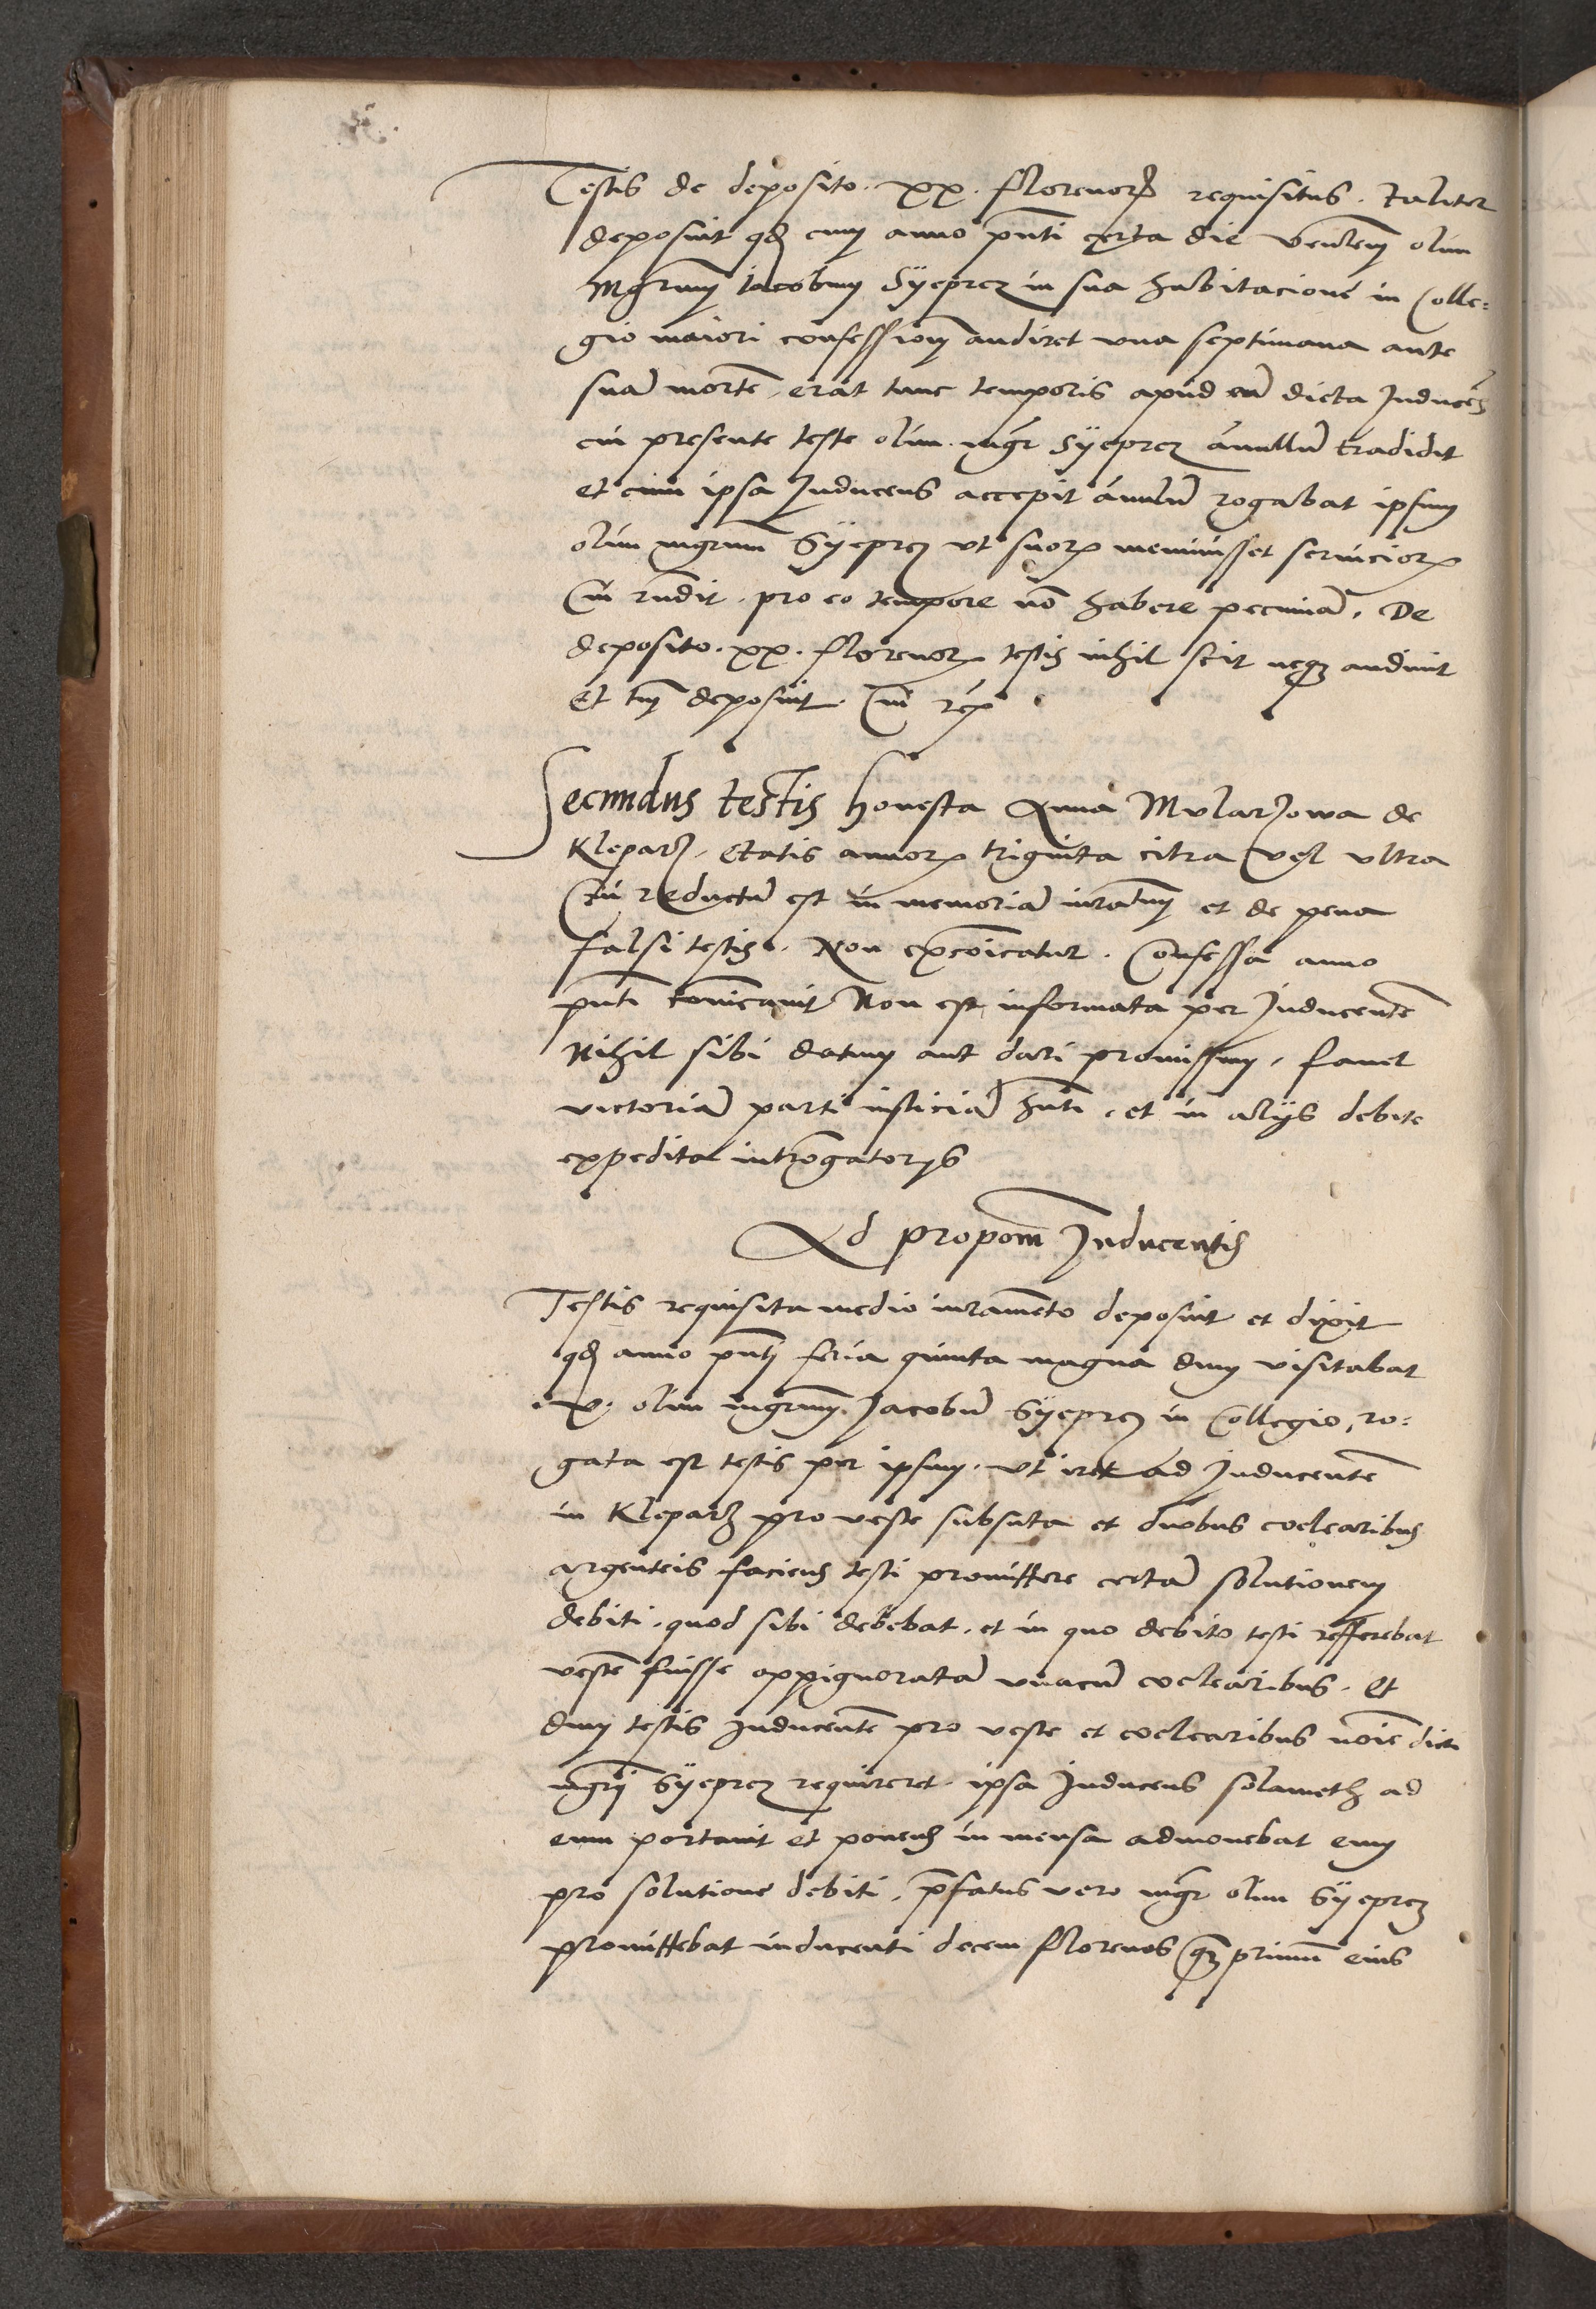 Testis de deposito · xx · florenorꝝ requisitus · Taliter
deposuit qđ cum anno pnti certa die olim
Mgrum Jacobum Syeprcz in sua habitacione in Colle=
gio maiori confessionem audiret vna septimana ante
suā mortē, erat tunc temporis apud eū dicta Inducens
cui presente teste olim · mgr Syeprcz ānullū tradidit
et cum ipsa Inducens accepit ānulū rogabat ipsum
olim mgrum Syeprcz vt suorꝝ meminisset serviciorꝝ
Cui rndit · pro eo tempore nō habere pecuniā · De
deposito · xx · florenorꝝ testis nihil scit neqꝫ audiuit
Et tm deposuit ·
Secundus testis honesta Anna Mularzowa de
Kleparz · etatis annorꝝ triginta citra vel vltra
Cui reductū est in memoriā iuratum et de pena
falsi testis · Non excōicatur · Confessa anno
pnti cōmunicauit Non est informata per Inducentē
Nihil sibi datum aut dari promissum, fauet
victoriā parti iusticiā hnti, et in alijs debite
expedita introgatorijs
Ad proponem Inducentis
Testis requisita medio iuramēto deposuit et dixit
qđ anno pnti feria quinta magna dum visitabat
olim mgrum · Jacobū Syeprcz in Collegio, ro=
gata est testis per ipsum · vt iret ad Inducentē
in Kleparz pro veste subsuta et duobus coclearibus
argenteis faciens testi promittere certā solutionem
debiti · quod sibi debebat · et in quo debito testi refferebat
vestē fuisse oppignoratā vnacū coclearibus · Et
dum testis Inducentē pro veste et coclearibus noīe dicti
mgri Syeprcz requireret · ipsa Inducens ad
eum portauit et ponens in mensa admonebat eum
pro solutione debiti, p̄fatus vero mgr olim Syeprcz
promittebat inducenti decem florenos qꝫ primum eius